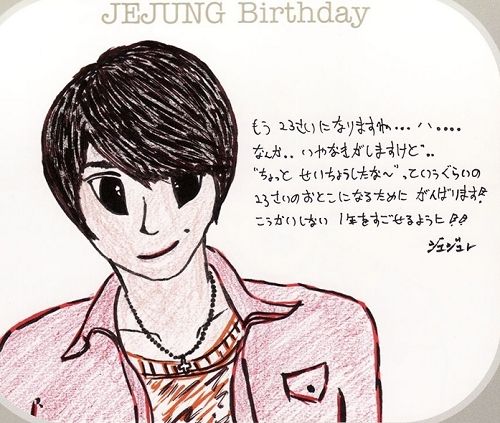 JEJUNG Birthday
もう 23さいになりますね... ハ....
なんか.. いやなきがしますけど..
"ちょっと せいちょうしたな〜" っていうぐらいの
23さいのおとこになるために がんばります!!
こうかいしない 1年をすごせるように!!
ジェジュン